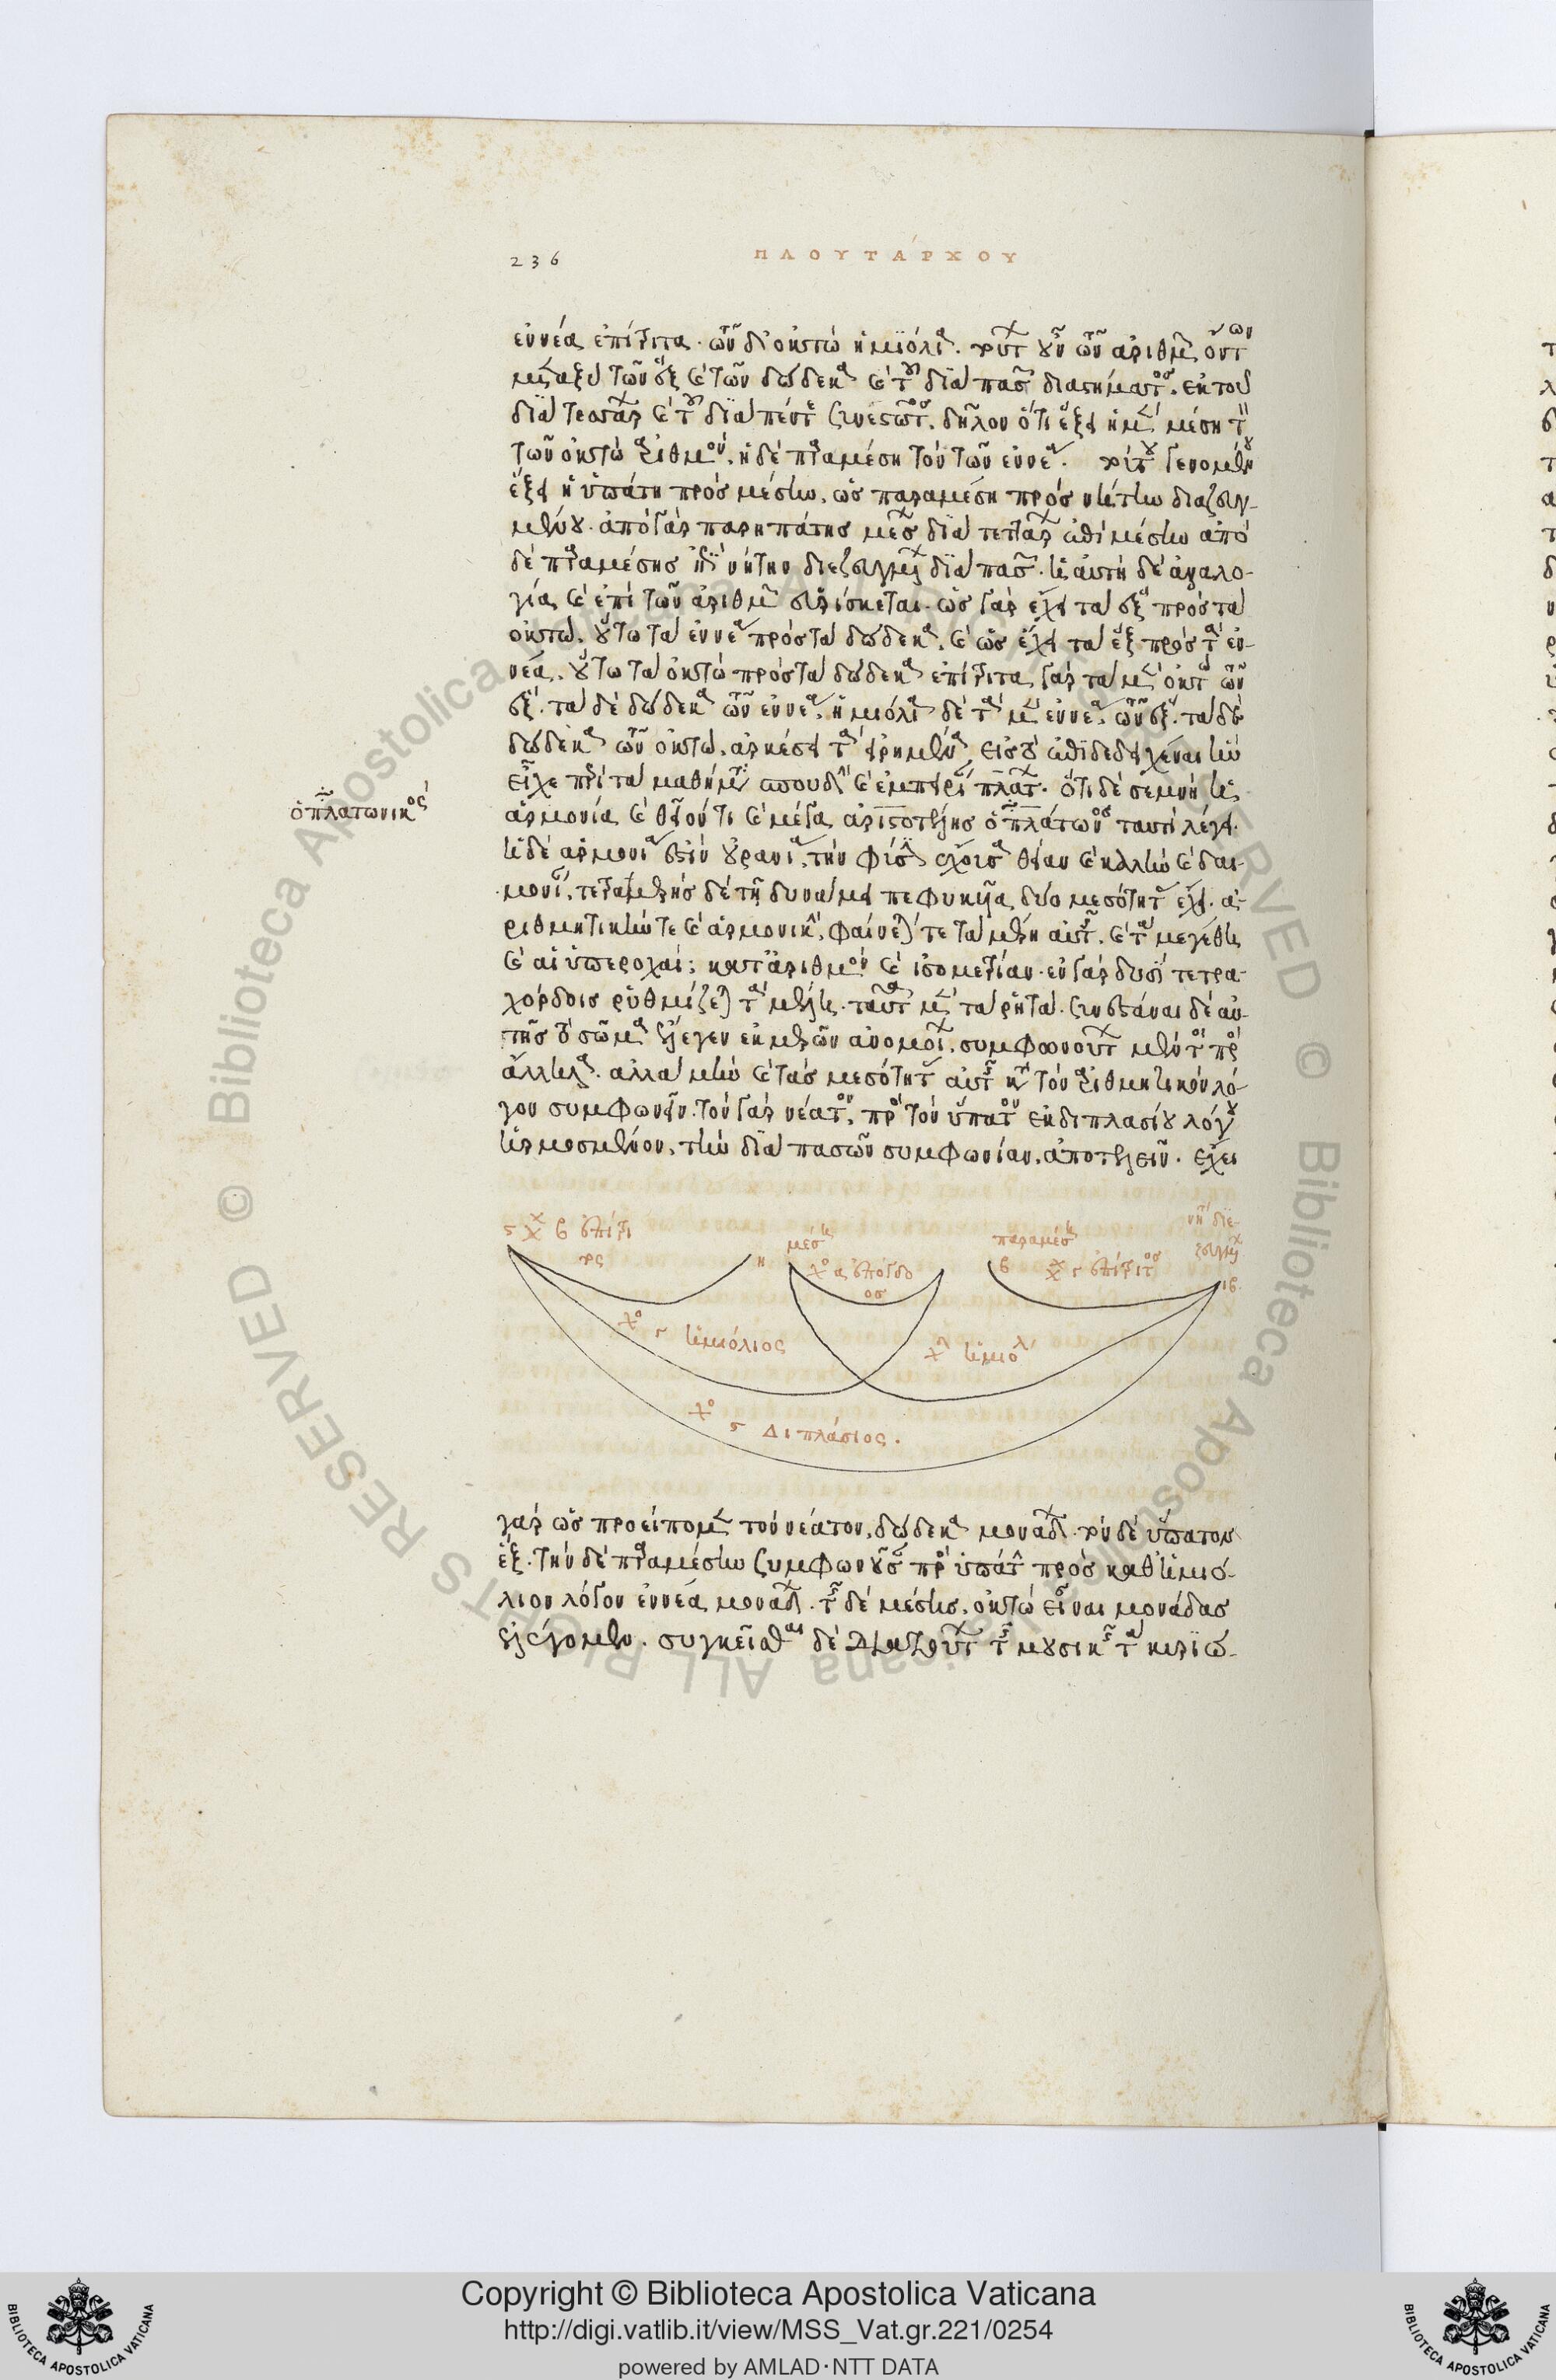 236
ΠΛΟΥΤΆΡΧΟΥ
ἐννέα ἐπίτριτα. τῶν δὲ ὀκτὼ ἡμιόλια. τούτων οὖν τῶν ἀριθμῶν ὄντων
μεταξὺ τῶν ἓξ καὶ τῶν δώδεκα καὶ τοῦ διὰ πασῶν διαστήματος. ἐκ τοῦ
διὰ τεσσάρων καὶ τοῦ διὰ πέντε συνεστῶτος. δῆλον ὅτι ἕξει ἡ μὲν μέση τὸν
τῶν ὀκτὼ ἀριθμόν. ἡ δὲ παραμέση τὸν τῶν ἐννέα. τούτου γενομένου
ἕξει ἡ ὑπάτη πρὸς μέσην. ὡς παραμέση πρὸς νήτην διεζευγ-
μένου. ἀπὸ γὰρ παρηπάτης μέσων διὰ τεττάρων ἐπὶ μέσην ἀπὸ
δὲ παραμέσης ἐπὶ νήτην διεζευγμένων διὰ πασῶν. ἡ αὐτὴ δὲ ἀναλο-
γία καὶ ἐπὶ τῶν ἀριθμῶν εὑρίσκεται. ὡς γὰρ ἔχει τὰ ἓξ πρὸς τὰ
ὀκτώ. οὕτω τὰ ἐννέα πρὸς τὰ δώδεκα. καὶ ὡς ἔχει τὰ ἓξ πρὸς τὰ ἐν-
νέα. οὕτω τὰ ὀκτὼ πρὸς τὰ δώδεκα ἐπίτριτα γὰρ τὰ μὲν ὀκτὼ τῶν
ἓξ. τὰ δὲ δώδεκα τῶν ἐννέα. ἡμιόλια δὲ τὰ μὲν ἐννέα τῶν ἓξ. τὰ δὲ
δώδεκα τῶν ὀκτώ. ἀρκέσει τὰ εἰρημένα εἰς τὸ ἐπιδεδειχέναι ἣν
εἶχε περὶ τὰ μαθήματα σπουδὴν καὶ ἐμπειρίαν πλάτων. ὅτι δὲ σεμνὴ ἡ
ὁ πλατωνικός
ἁρμονία καὶ θεῖόν τι καὶ μέγα ἀριστοτέλης ὁ πλάτωνος ταυτὶ λέγει.
ἡ δὲ ἁρμονία ἐστὶν οὐρανία, τὴν φύσιν ἔχουσα θείαν καὶ καλὴν καὶ δαι-
μονίαν. τετραμερὴς δὲ τῇ δυνάμει πεφυκυῖα δύο μεσότητας ἔχει. ἀ-
ριθμητικήν τε καὶ ἁρμονικήν. φαίνεταί τε τὰ μέρη αὐτῆς. καὶ τὰ μεγέθη
καὶ αἱ ὑπεροχαί; κατ' ἀριθμὸν καὶ ἰσομετρίαν. ἐν γὰρ δυσὶ τετρα-
χόρδοις ῥυθμίζεται τὰ μέλη. ταῦτα μὲν τὰ ῥητά. συνεστάναι δὲ αὐ-
τῆς τὸ σῶμα ἔλεγεν ἐκ μερῶν ἀνομοίων. συμφωνούντων μέντοι πρὸς
ἄλληλα. ἀλλὰ μὴν καὶ τὰς μεσότητας αὐτῆς κατὰ τὸν ἀριθμητικὸν λό-
γον συμφωνεῖν. τὸν γὰρ νέατον. πρὸς τὸν ὕπατον ἐκ διπλασίου λόγου
ἡρμοσμένον. τὴν διὰ πασῶν συμφωνίαν. ἀποτελεῖν. ἔχει
μέση
παραμέση
ἐπίτρι
τος
ἐπόγδο
ος
ἐπίτριτος
ιβ
ἡμιόλιος
ἡμιόλ
Διπλάσιος.
γὰρ ὡς προείπομεν τὸν νέατον. δώδεκα μονάδων. τὸν δὲ ὕπατον
ἕξ. τὴν δὲ παραμέσην συμφωνοῦσαν πρὸς ὑπάτην πρὸς καθ' ἡμιό-
λιον λόγον ἐννέα μονάδων. τῆς δὲ μέσης. ὀκτὼ εἶναι μονάδας
ἐλέγομεν. συγκεῖσθαι δὲ διὰ τούτων τῆς μουσικῆς τὰ κυριώ-